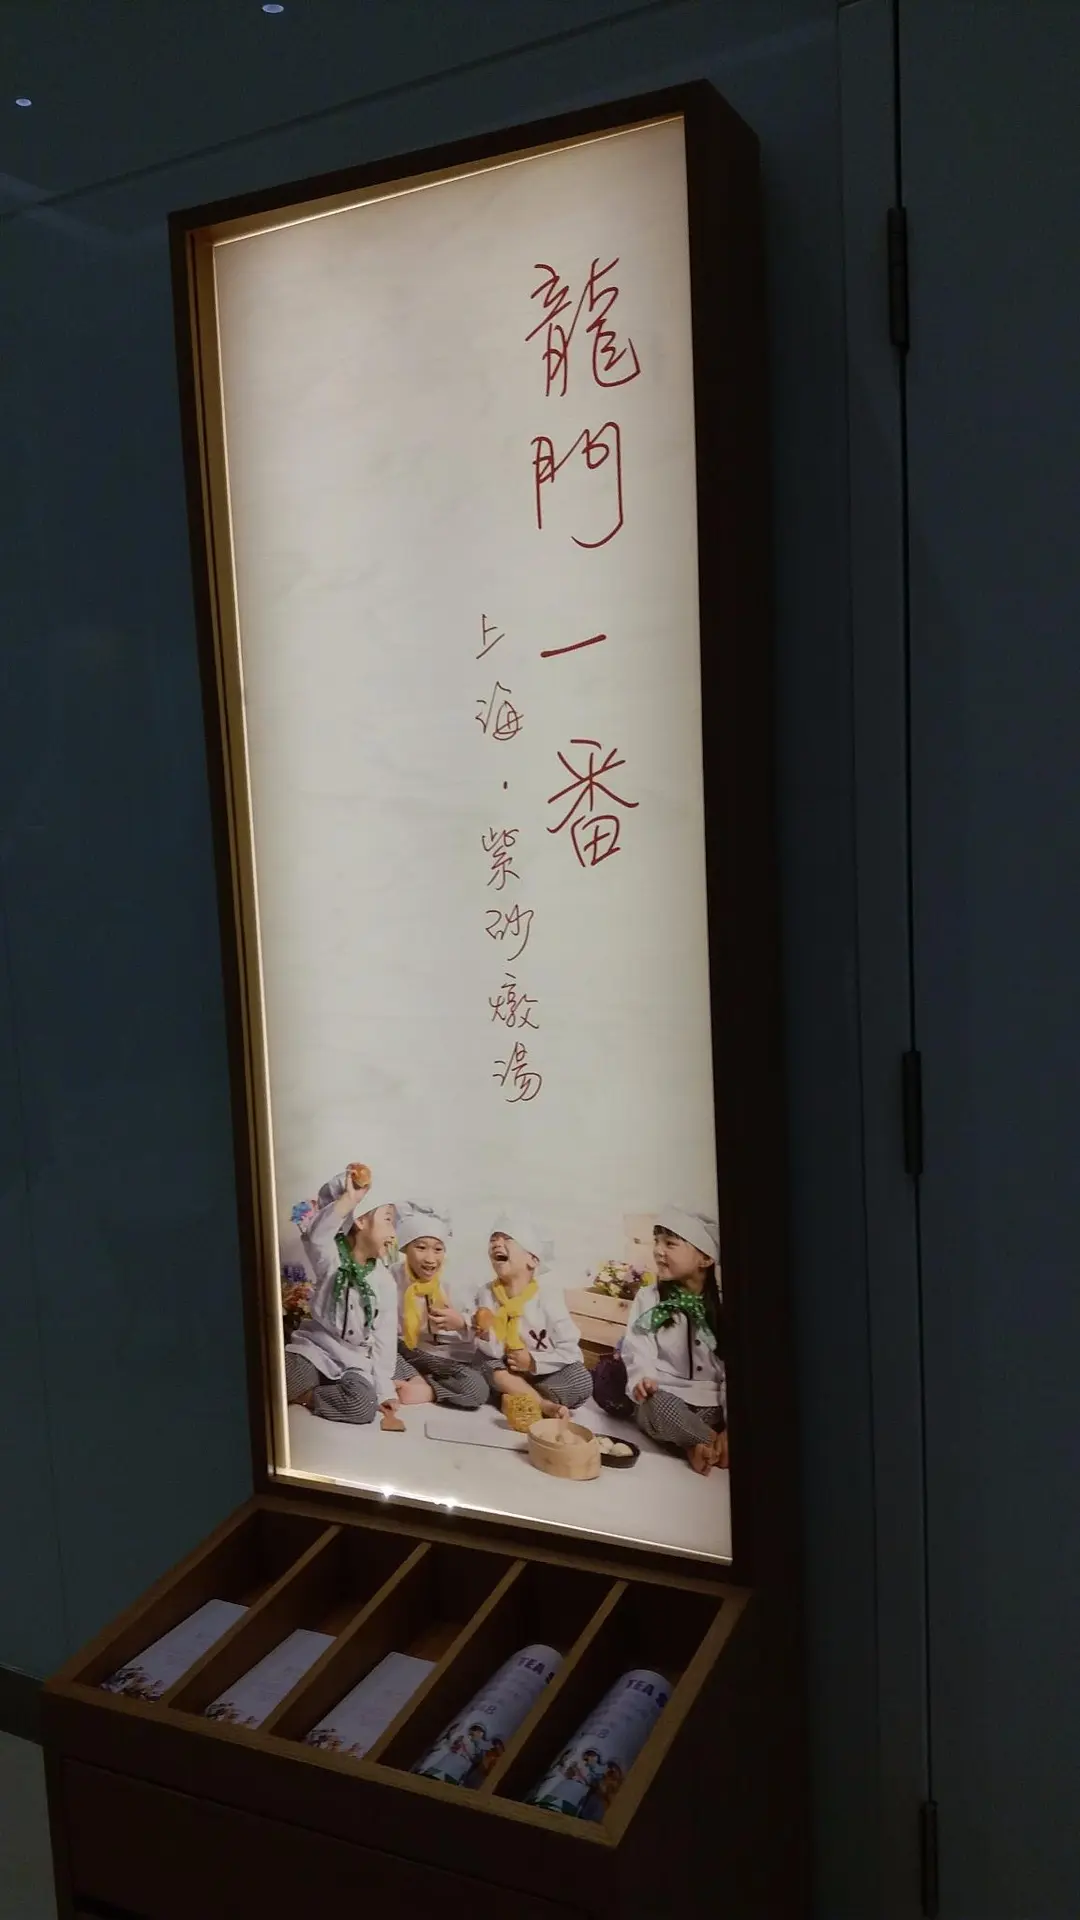 龍門一番
上海·紫砂燉湯
TEA S
TEA S